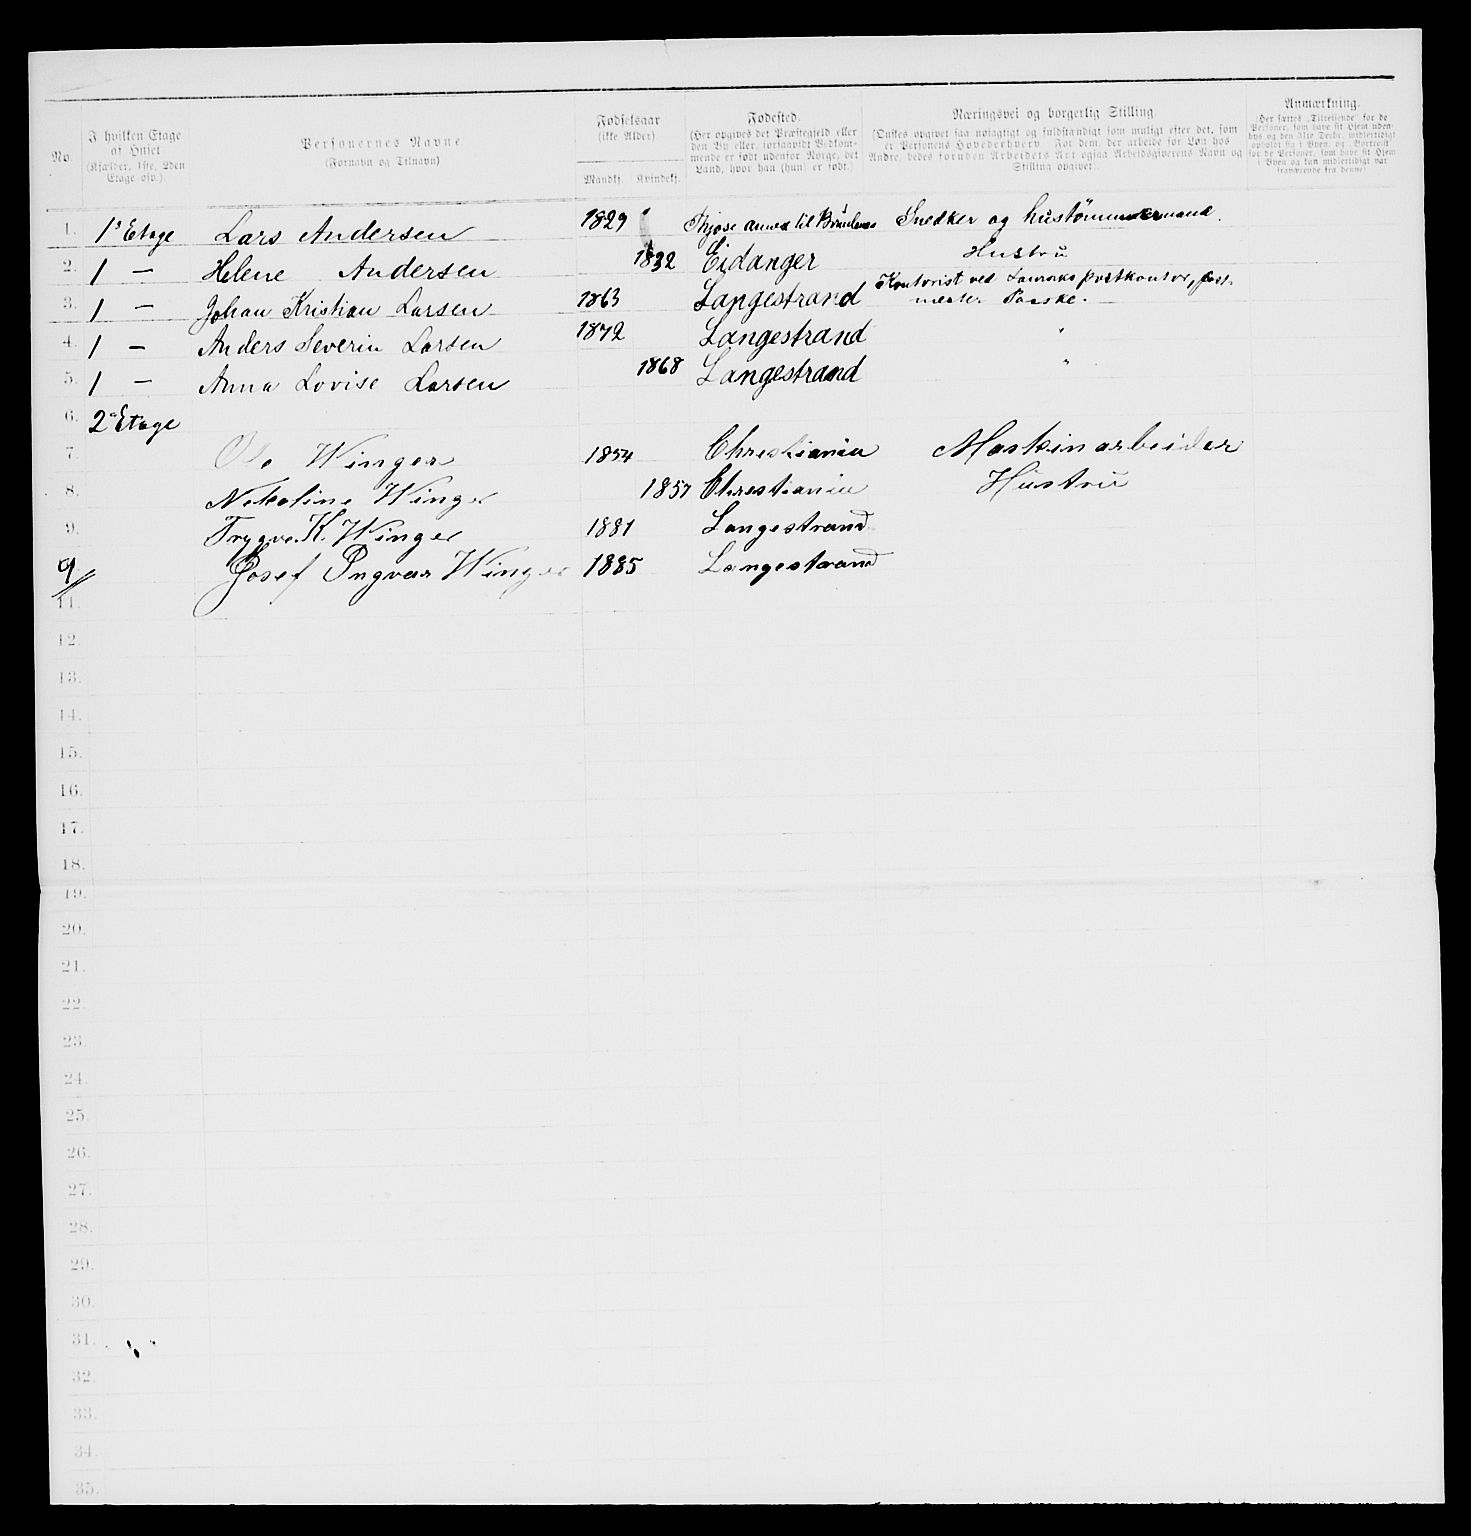 No. I hvilken Etage af Huset (Kjælder, 1ste, 2den Etage osv.). Personernes Navne (Fornavn og Tilnavn) Fødselsaar (ikke Alder). Mandkj. Kvindekj. Fødested. (Her opgives det Præstegjeld eller den By eller, forsaavidt Vedkommende er født udenfor Norge, det Land, hvor han (hun) er født.) Næringsvei og borgerlig Stilling (Ønskes opgivet saa nøiagtigt og fuldstændigt som muligt efter det, som er Personens Hovederhverv. For dem, der arbeide for Løn hos Andre, bedes foruden Arbeidets Art ogsaa Arbeidsgiverens Navn og Stilling opgivet). Anmærkning. (Her sættes „Tilreisende" for de Personer, som have sit Hjem udenbys og den 31te Decbr. midlertidigt opholdt sig i Byen, og „Bortreist" for de Personer, som have sit Hjem i Byen og kun midlertidigt var fraværende fra denne)
1. 1s Etage Lars Andersen 1829 Kjose annex til Brunlanes Snedker og hustømmermand.
2. 1 — Helene Andersen 1832 Eidanger Hustru
3. 1 — Johan Kristian Larsen 1863 Langestrand Kontorist ved Laurviks postkontor, postmester Paaske.
4. 1 — Anders Severin Larsen 1872 Langestrand "
5. 1 — Anna Lovise Larsen 1868 Langestrand "
6. 2 Etage
7. Ole Winger 1854 Christiania Maskinarbeider
8. Nikoline Winger 1857 Christiania Hustru
9. Trygve. K. Winger 1881 Langestrand
9 Josef Ingvar Winger 1885 Langestrand
11.
12.
13.
14.
15.
16.
17.
18.
19.
20.
21.
22.
23.
24.
25.
26.
27.
28.
29.
30.
31.
32.
33.
34.
35.